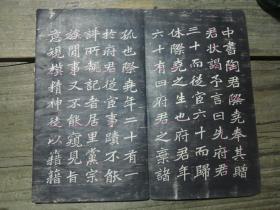 中書陶君際堯奉其贈
君狀謁予言曰先府君
三十而從官六十而歸
休際堯之生也府君年
六十有四府君之棄諸
孤也際堯年二十有一
於府君從官事蹟不能
詳所覩記者居里黨宗
族閒事又不能窺見旨
意規模精神徒以籍籍